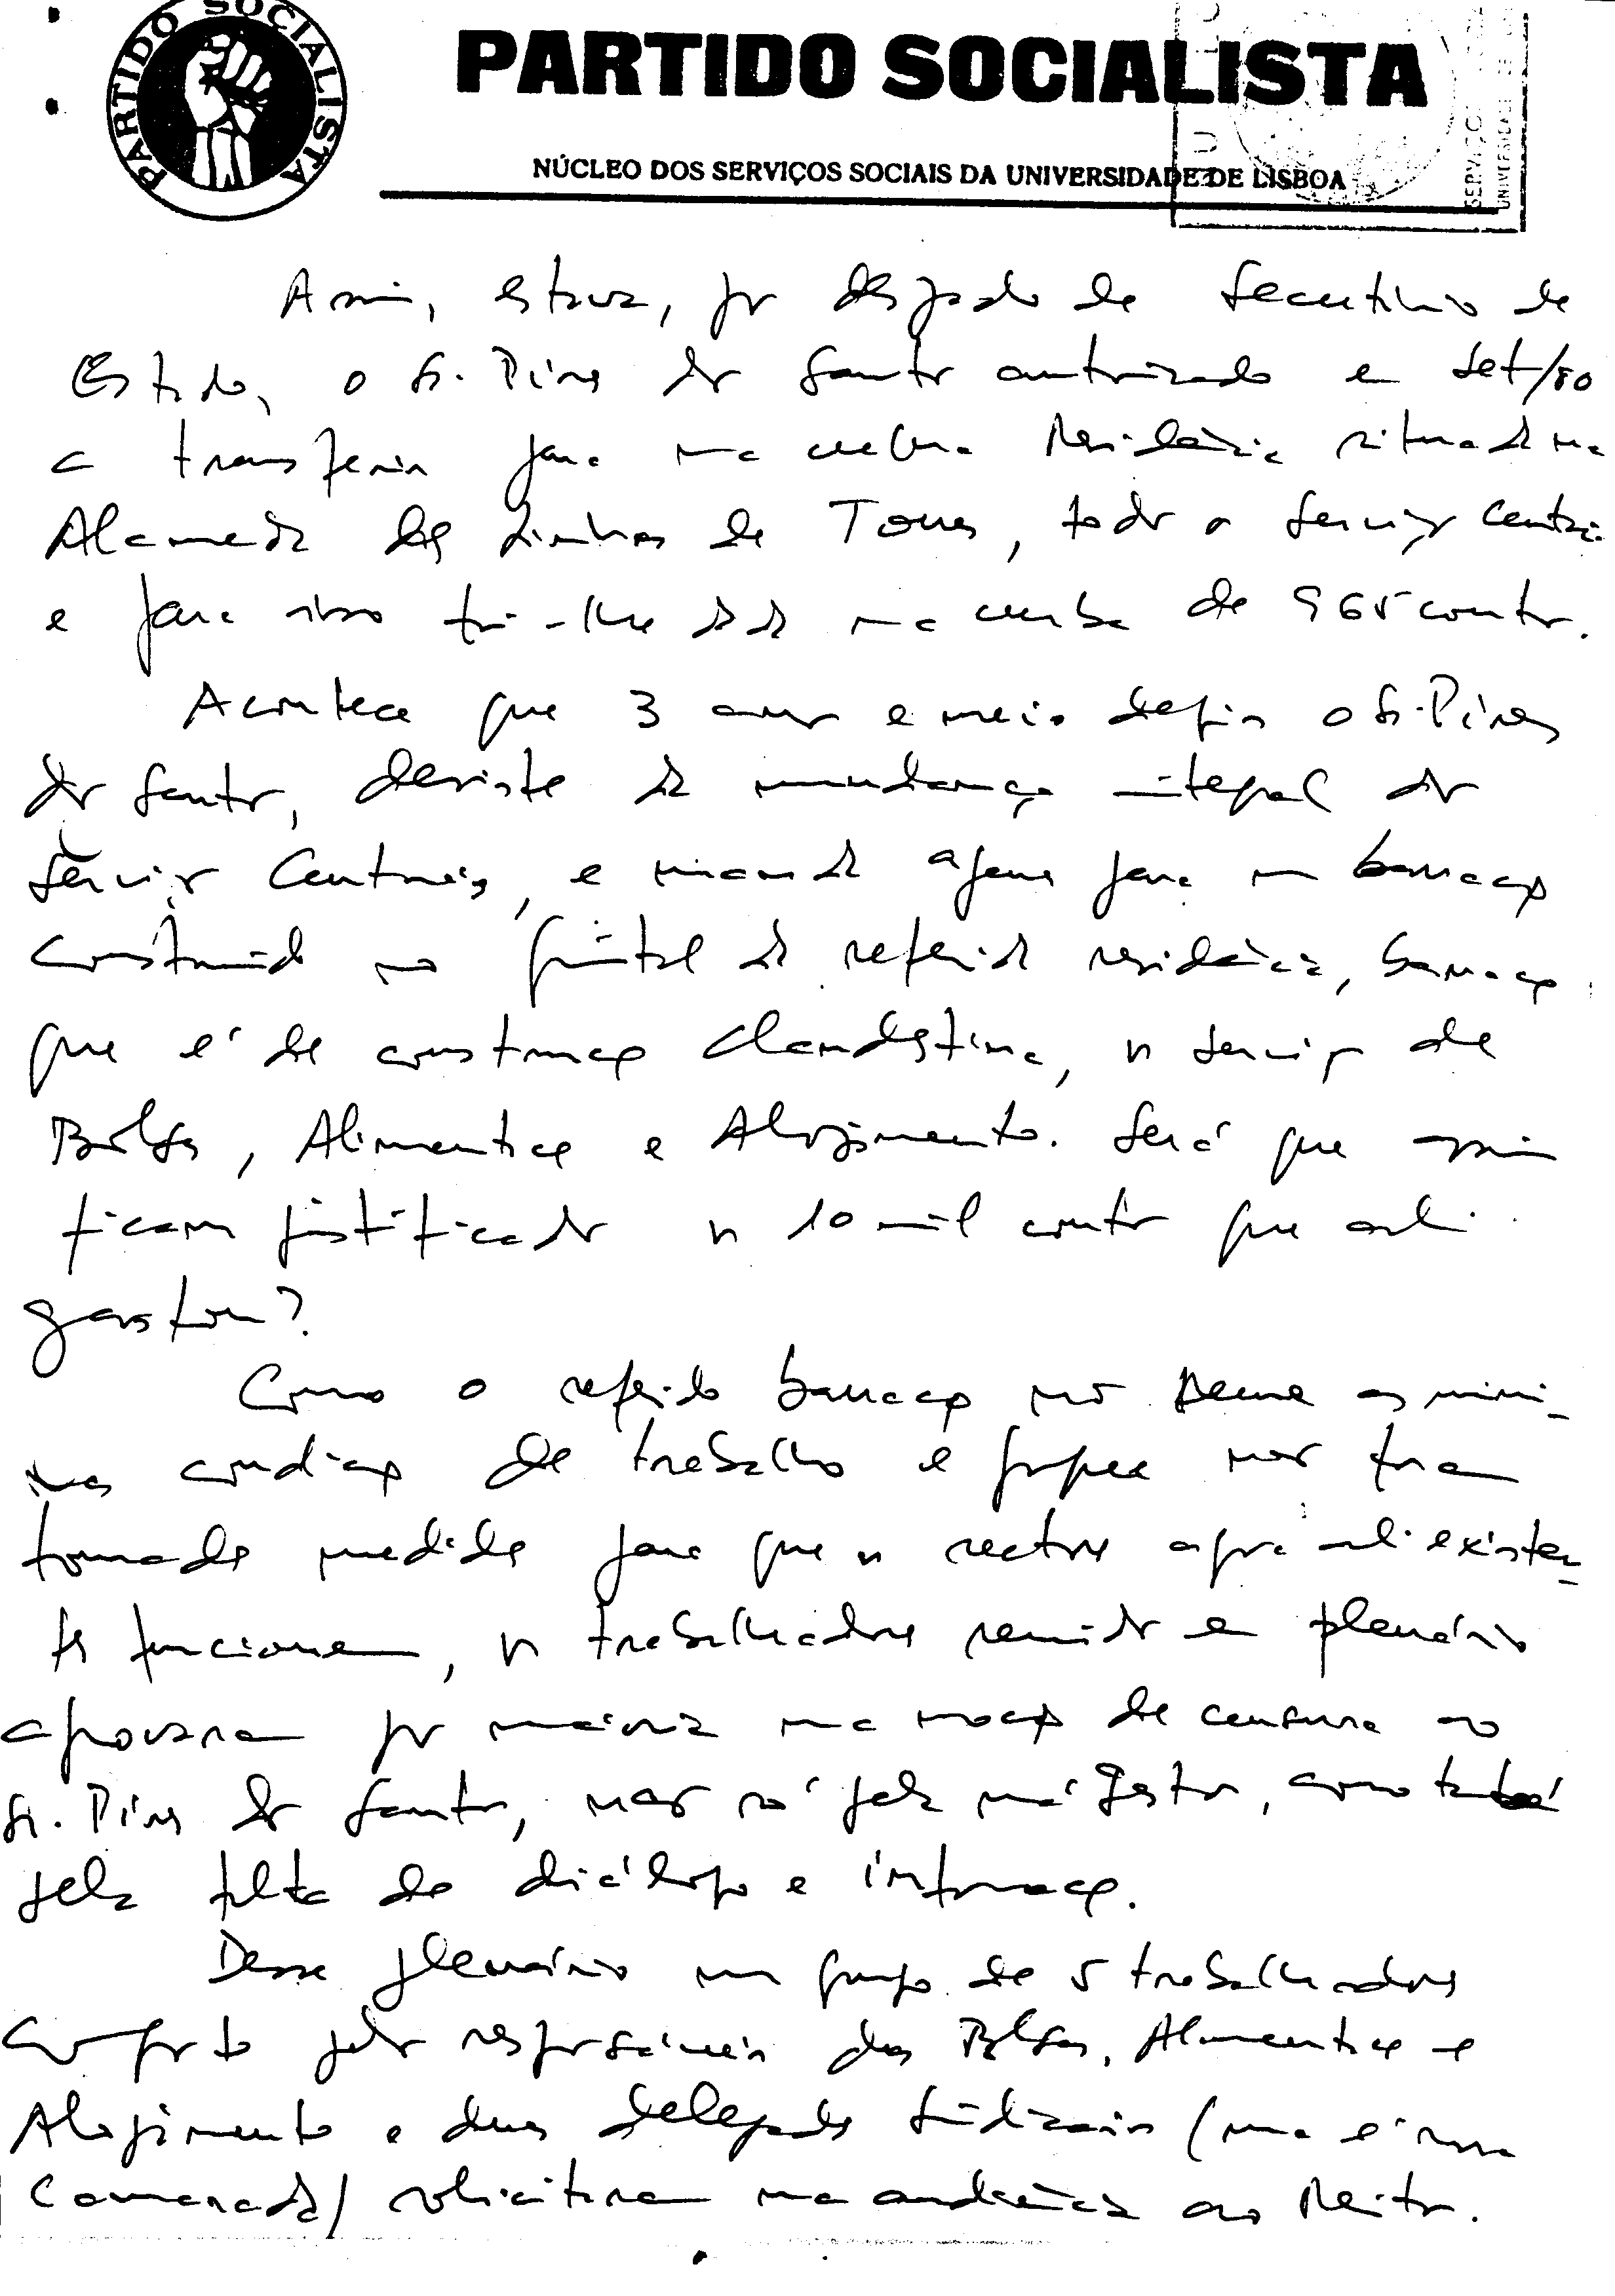 PARTIDO SOCIALISTA
PARTIDO SOCIALISTA
NÚCLEO DOS SERVIÇOS SOCIAIS DA UNIVERSIDADE DE LISBOA
SERVIÇO
UNIVERSIDADE DE
Assim, estava, por despacho do Secretário de
Estado, o Sr. Pires dos Santos autorizado em Set/80
a transferir para uma velha Residência situada na
Alameda das Linhas de Torres, todos os Serviços Centrais
e para isso foi-lhe dada uma verba de 965 contos.
Acontece que 3 anos e meio depois o Sr. Pires
dos Santos, desiste da mudança integral dos
Serviços Centrais, e manda apenas para um barracão
construído no quintal da referida residência, barracão
que é de construção clandestina, os serviços de
Bolsas, Alimentação e Alojamento. Será que assim
ficam justificados os 10 mil contos que ali
gastou?
Como o referido barracão não reune as míni-
mas condições de trabalho e porque não foram
tomadas medidas para que os sectores agora ali existen-
tes funcionem, os trabalhadores reunidos em plenário
aprovaram por maioria uma moção de censura ao
Sr. Pires dos Santos, não só pela má gestão, como também
pela falta de diálogo e informação.
Desse plenário um grupo de 5 trabalhadores
composto pelos responsáveis das Bolsas, Alimentação e
Alojamento e duas delegadas sindicais (uma é nossa
Camarada) solicitaram uma audiência ao Reitor.